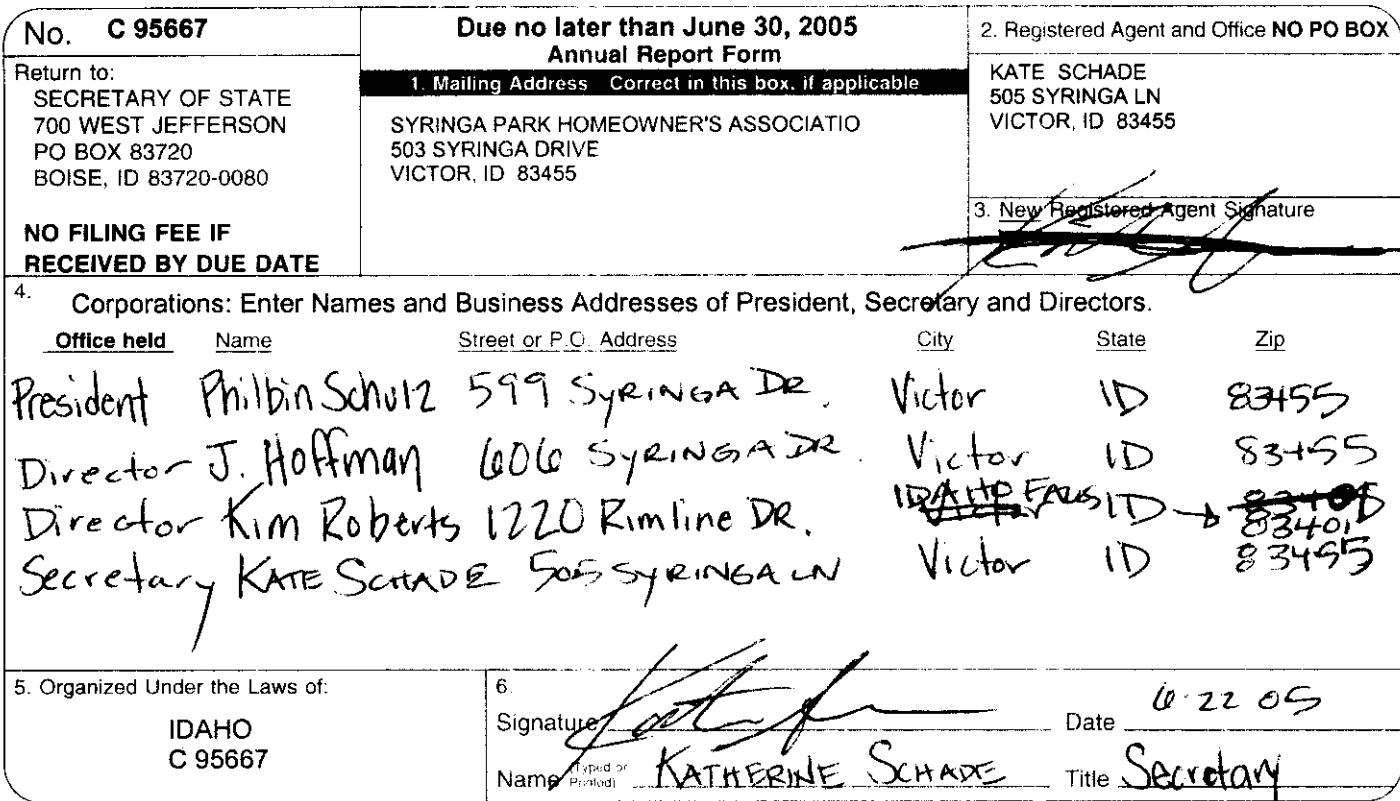 No. C 95667
Return to:
SECRETARY OF STATE
700 WEST JEFFERSON
PO BOX 83720
BOISE, ID 83720-0080
NO FILING FEE IF
RECEIVED BY DUE DATE
Due no later than June 30, 2005
Annual Report Form
1. Mailing Address Correct in this box, if applicable
SYRINGA PARK HOMEOWNER'S ASSOCIATIO
503 SYRINGA DRIVE
VICTOR, ID 83455
2. Registered Agent and Office NO PO BOX
KATE SCHADE
505 SYRINGA LN
VICTOR, ID 83455
3. New Registered Agent Signature
4. Corporations: Enter Names and Business Addresses of President, Secretary and Directors.
Office held Name Street or P.O. Address City State Zip
President Philbin Schulz 599 SYRINGA DR. Victor ID 83455
Director J. Hoffman 606 SYRINGA DR. Victor ID 83455
Director Kim Roberts 1220 Rimline DR. IDAHO FALLS ID 83401
Secretary KATE SCHADE 505 SYRINGA LN Victor ID 83455
5. Organized Under the Laws of:
IDAHO
C 95667
6.
Signature Date 6-22 05
Name (Typed or Printed) KATHERINE SCHADE Title Secretary